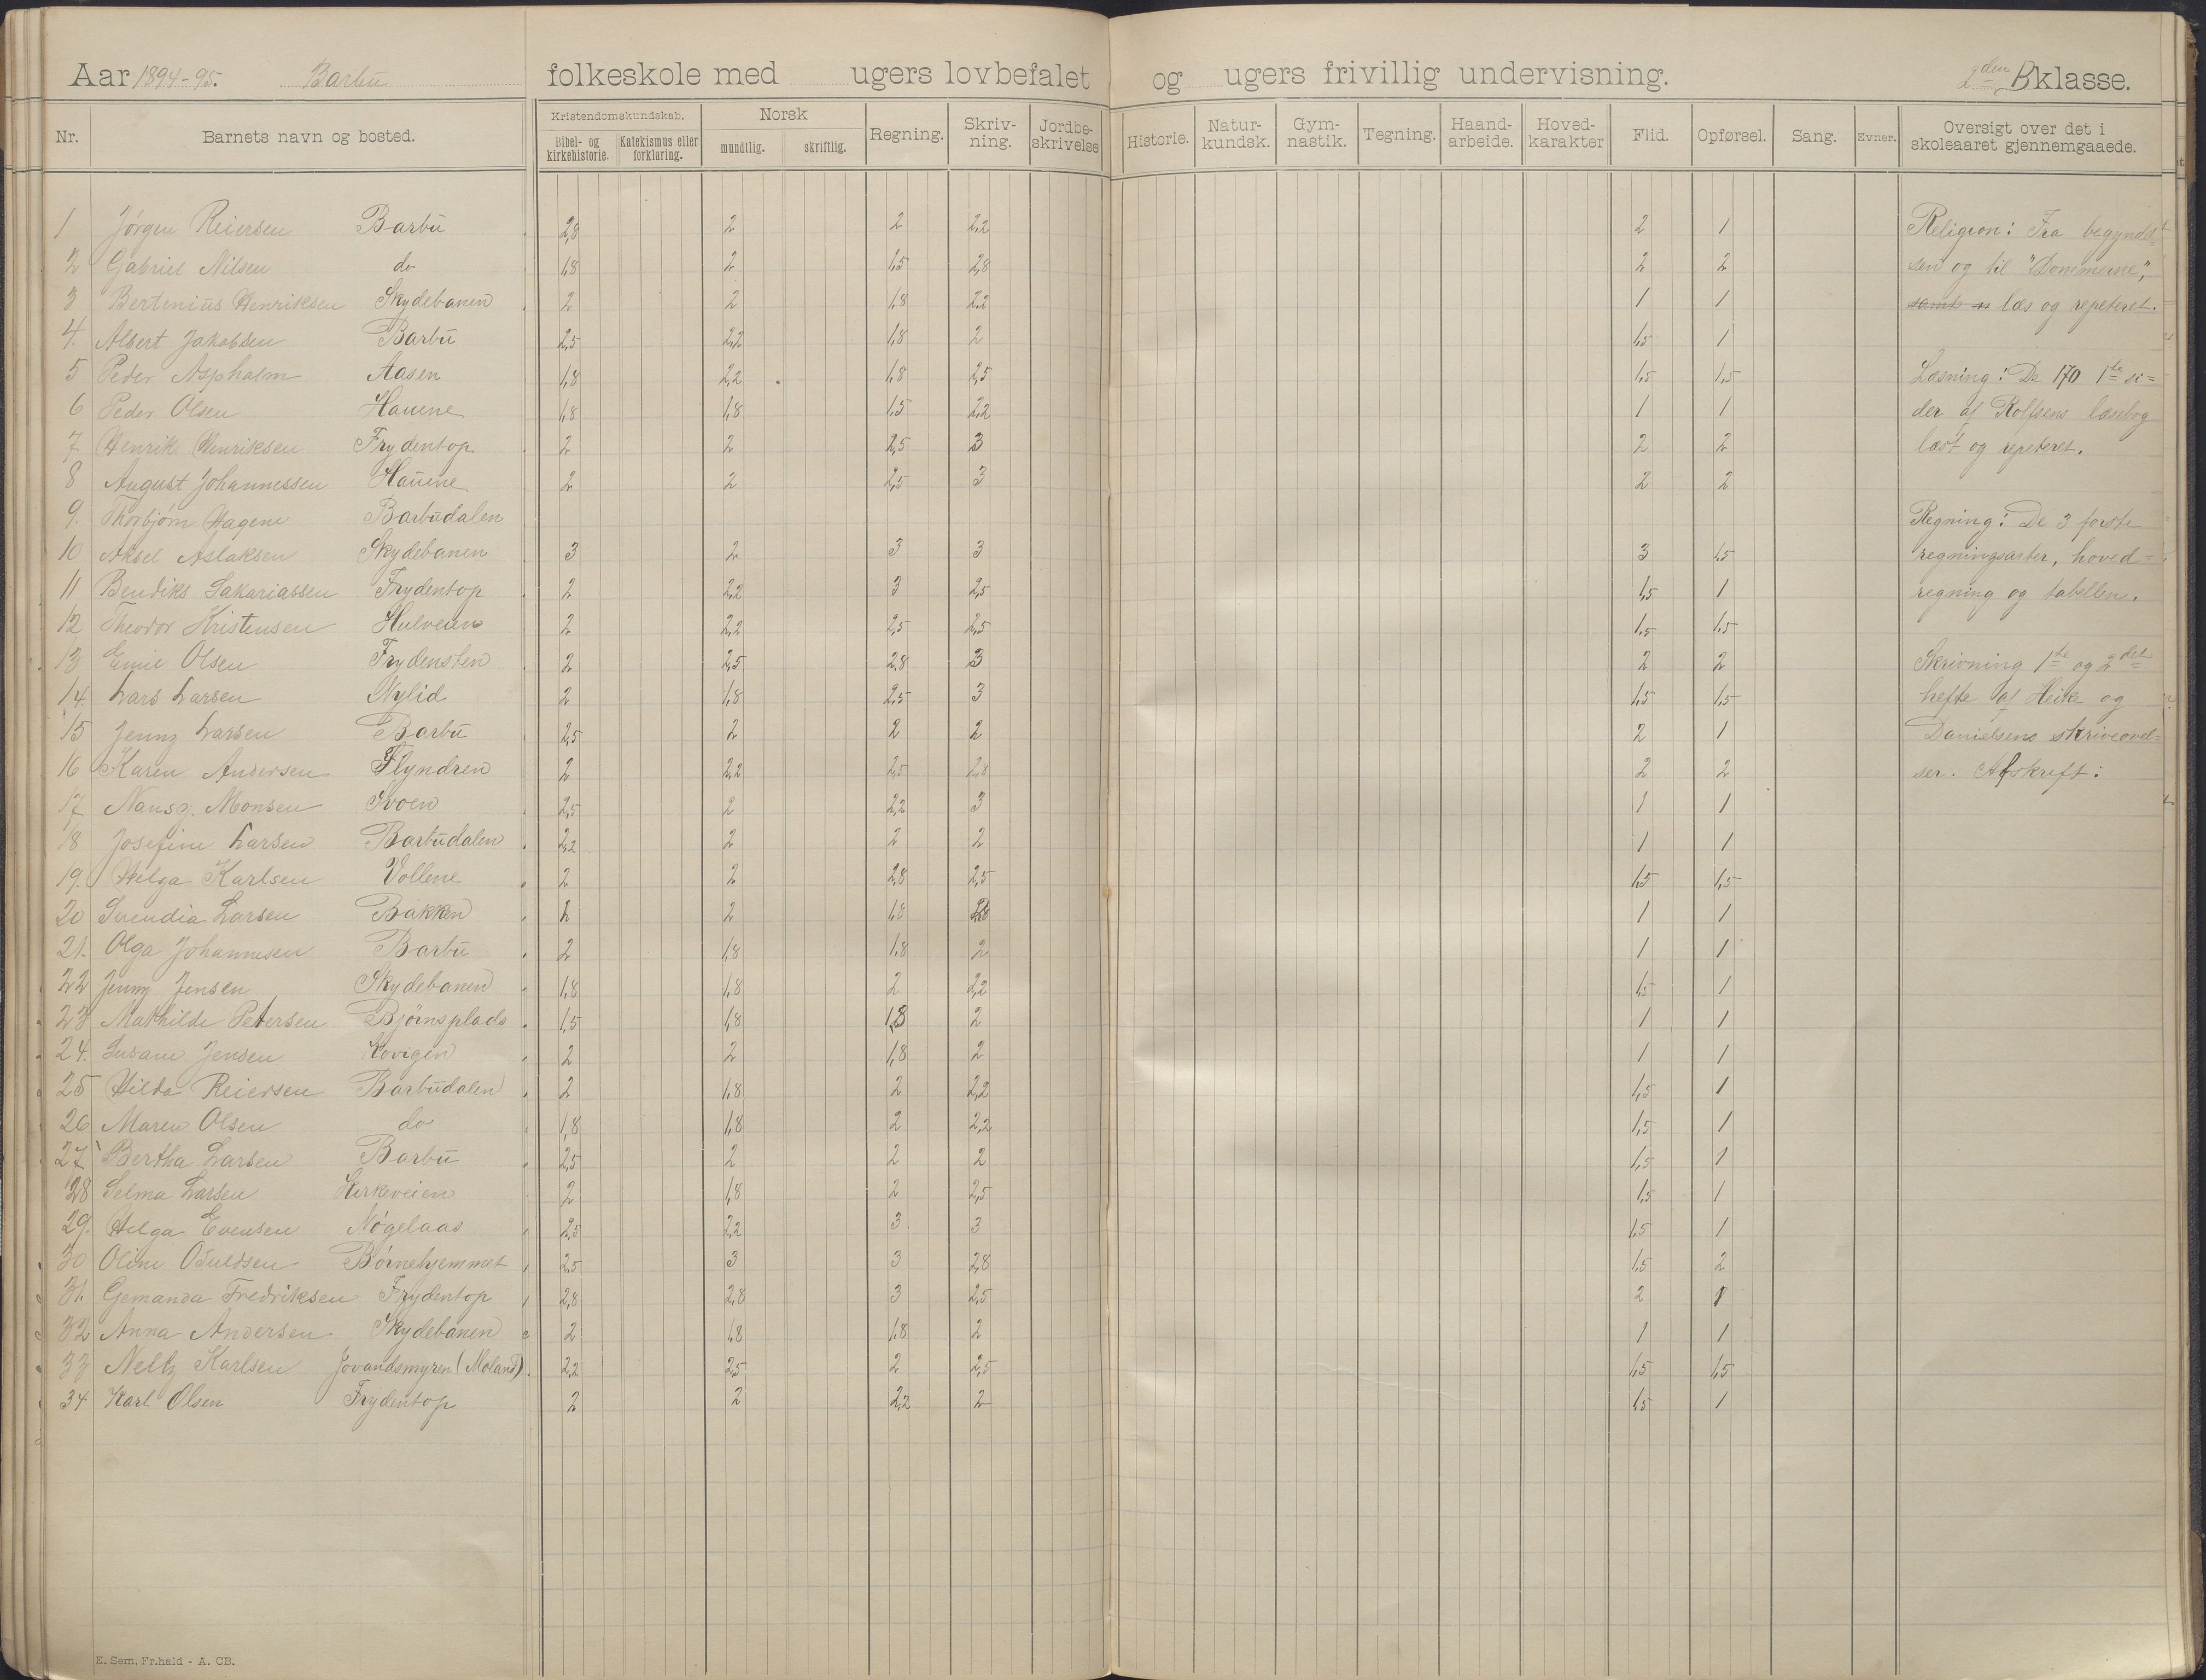 Aar 1894-95. Barbu folkeskole med ugers lovbefalet og ugers frivillig undervisning. 2den B klasse.
Nr. Barnets navn og bosted. Kristendomskundskab. Bibel- og kirkehistorie. Katekismus eller forklaring. Norsk mundtlig. skriftlig. Regning. Skriv-ning. Jordbe-skrivelse Historie. Natur-kundsk. Gym-nastik. Tegning. Haand-arbeide. Hoved-karakter Flid. Opførsel. Sang. Evner. Oversigt over det i skoleaaret gjennemgaaede.
1 Jørgen Reiersen Barbu 2,8 2 2 2,2 2 1 Religion: Fra begyndel=
2 Gabriel Nilsen do 1,8 2 1,5 2,8 2 2 sen og til "Dommerne",
3 Bertenius Henriksen Skydebanen 2 2 1,8 2,2 1 1 samt læs og repeteret.
4. Albert Jakobsen Barbu 2,5 2,2 1,8 2 1,5 1
5 Peder Aspholm Aasen 1,8 2,2 1,8 2,5 1,5 1,5 Læsning: De 170 1ste si=
6 Peder Olsen Hauene 1,8 1,8 1,5 2,2 1 1 der af Rolfsens læsebog
7 Henrik Henriksen Frydentop 2 2 2,5 3 2 2 læst og repeteret.
8 August Johannessen Hauene 2 2 2,5 3 2 2
9. Thorbjørn Hagene Barbudalen Regning: De 3 første
10 Aksel Aslaksen Skydebanen 3 2 3 3 3 1,5 regningsarter, hoved=
11 Bendiks Sakariassen Frydentop 2 2,2 3 2,5 1,5 1 regning og tabellen.
12 Theodor Kristensen Hulveien 2 2,2 2,5 2,5 1,5 1,5
13 Emil Olsen Frydensten 2 2,5 2,8 3 2 2 Skrivning 1ste og 2det
14. Lars Larsen Nylid 2 1,8 2,5 3 1,5 1,5 hefte af Heike og
15 Jenny Larsen Barbu 2,5 2 2 2 2 1 Danielsens skriveøvel=
16 Karen Andersen Flyndren 2 2,2 2,5 2,8 2 2 ser. Afskrift:
17 Nansy Monsen 2,5 2 2,2 3 1 1
18 Josefine Larsen Barbudalen 2,2 2 2 2 1 1
19. Helga Karlsen Vollene 2 2 2,8 2,5 1,5 1,5
20 Svendia Larsen Bakken 2 2 1,8 1 1
21. Olga Johannesen Barbu 2 1,8 1,8 2 1 1
22 Jenny Jensen Skydebanen 1,8 1,8 2 2,2 1,5 1
23 Mathilde Petersen Bjørnsplads 1,5 1,8 1,8 2 1 1
24. Susane Jensen Kovigen 2 2 1,8 2 1 1
25 Hilda Reiersen Barbudalen 2 1,8 2 2,2 1,5 1
26 Maren Olsen do 1,8 1,8 2 2,2 1,5 1
27 Bertha Larsen Barbu 2,5 2 2 2 1,5 1
28 Selma Larsen Kirkeveien 2 1,8 2 2,5 1,5 1
29. Helga Evensen Nøgelaas 2,5 2,2 3 3 1,5 1
30 Oline Osuldsen Børnehjemmet 2,5 3 3 2,8 1,5 2
31. Gemanda Fredriksen Frydentop 2,8 2,8 3 2,5 2 1
32 Anna Andersen Skydebanen 2 1,8 1,8 2 1 1
33 Nelly Karlsen Jovandsmyren (Moland) 2,2 2,5 2 2,5 1,5 1,5
34 Karl Olsen Frydentop 2 2 2,2 2 1,5 1
E. Sem, Fr.hald - A. CB.